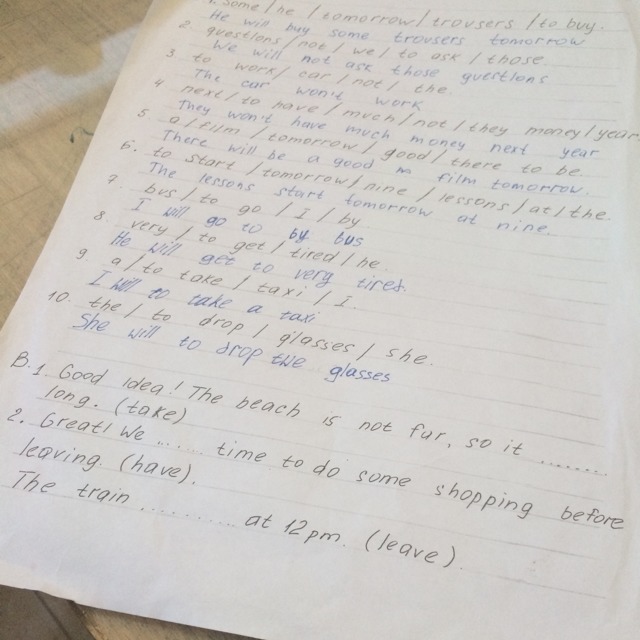 1. Some / he / tomorrow / trousers / to buy.
He will buy some trousers tomorrow
2. questions / not / we / to ask / those.
We will not ask those questions
3. to work / car / not / the.
The car won't work
4 next / to have / much / not / they money / year
They won't have much money next year
5. a / film / tomorrow / good / there to be
There will be a good film tomorrow.
6. to start / tomorrow / nine / lessons / at / the
The lessons start tomorrow at nine
7. bus / to go / I / by
I will go to by bus
8. very / to get / tired / he.
He will get to very tired.
9 a / to take / taxi / I.
I will to take a taxi
10. the / to drop / glasses / she.
She will to drop the glasses
B. 1. Good idea! The beach is not far, so it ........
long. (take)
2. Great! We ........ time to do some shopping before
leaving. (have).
The train .......... at 12 pm. (leave)